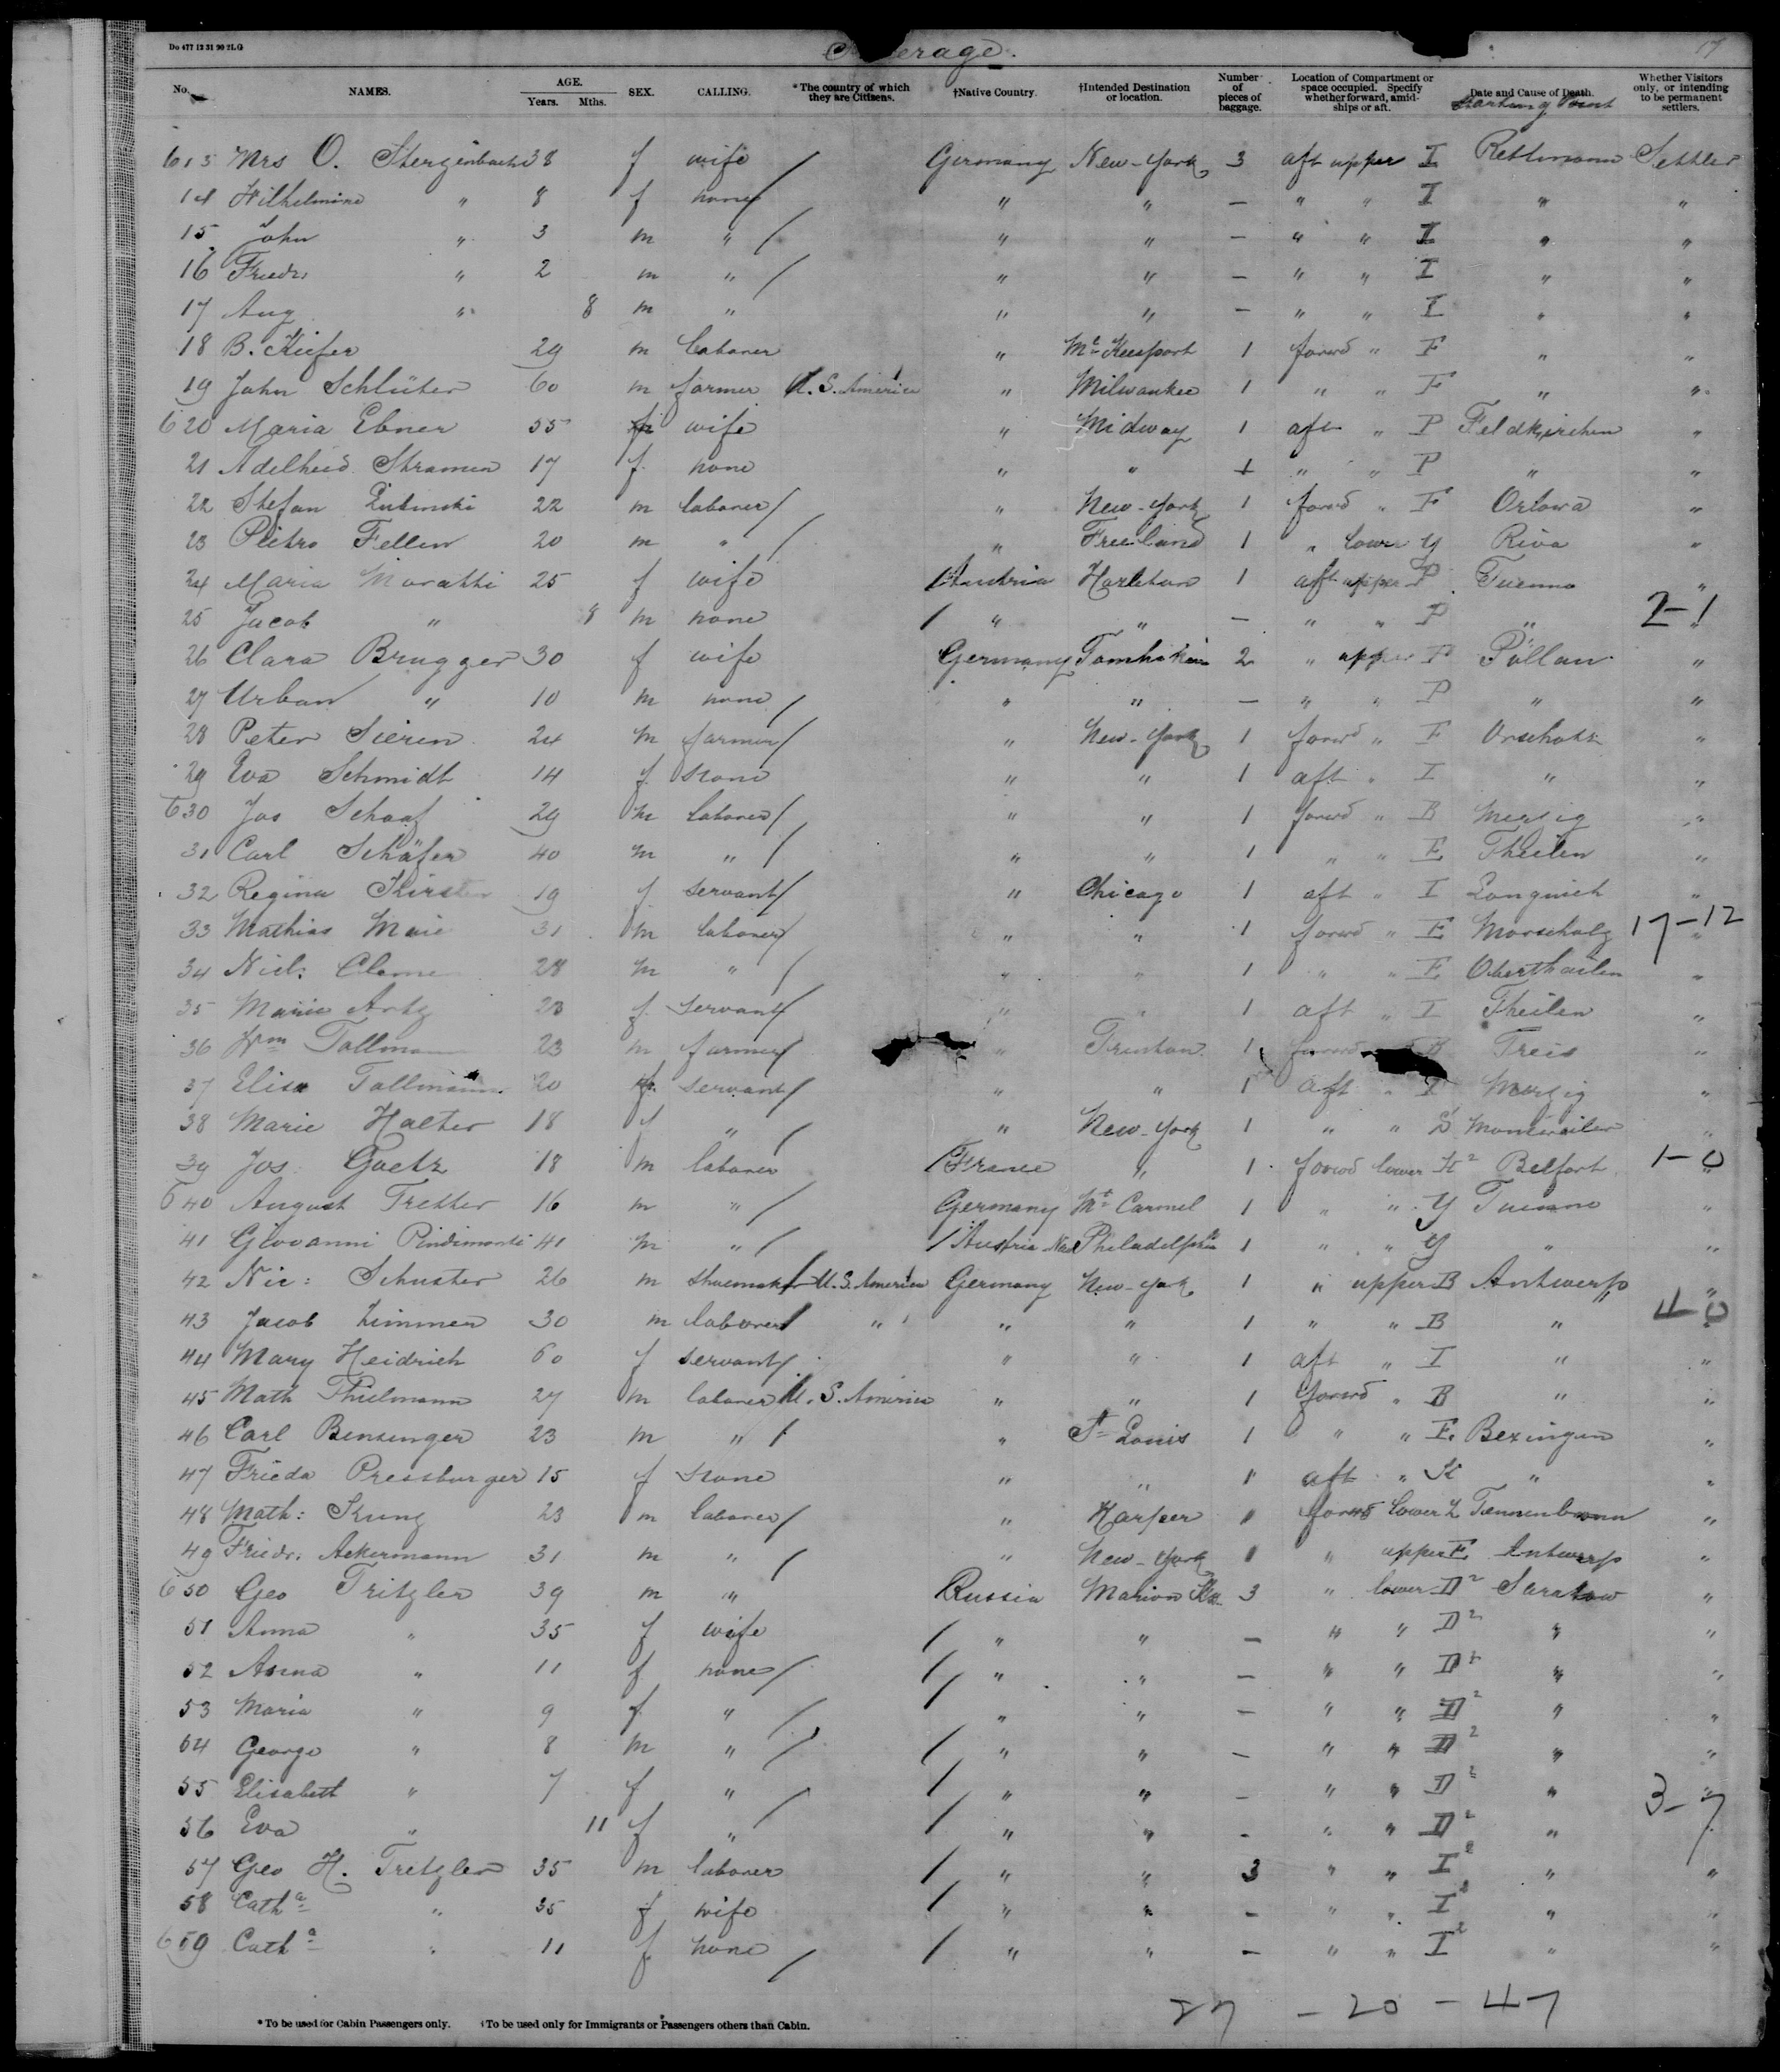 Do 477 12 31 90 2LG
17
No. NAMES. AGE. Years. Mths. SEX. CALLING. *The country of which they are Citizens. †Native Country. †Intended Destination or location. Number of pieces of baggage. Location of Compartment or space occupied. Specify whether forward, amidships or aft. Date and Cause of Death. Starting Point Whether Visitors only, or intending to be permanent settlers.
613 Mrs O. 38 f wife / Germany New-York 3 aft upper I Settler
14 Wilhelmine " 8 f none / " " — " " I " "
15 John " 3 m " / " " — " " I " "
16 Friedr. " 2 m " / " " — " " I " "
17 Aug " 8 m " " " — " " I " "
18 B. Kiefer 29 m laborer " Mc Keesport 1 forwd " F " "
19 John Schlüter 60 m farmer U.S. America " Milwaukee 1 " " F " "
620 Maria Ebner 55 f wife " Midway 1 aft " P Feldkirchen "
21 Adelheid 17 f. none " " 1 " " P " "
22 Stefan 22 m laborer / " New-York 1 forwd " F "
23 Pietro Fellin 20 m " / " Freeland 1 " lower Y Riva "
24 Maria Moratti 25 f wife / Austria 1 aft upper P Tuenno "
25 Jacob " 8 m none / " " — " " P " " 2-1
26 Clara Brugger 30 f wife Germany 2 " upper P "
27 Urban " 10 m none / " " — " " P " "
28 Peter Sieren 24 m farmer / " New-York 1 forwd " F "
29 Eva Schmidt 14 f. none " " 1 aft " I " "
630 Jos Schaaf 29 m laborer / " " 1 forwd " B Merzig "
31 Carl Schäfer 40 m " / " " 1 " " E Theilen "
32 Regina Kirsten 19 f servant / " Chicago 1 aft " I Longuich "
33 Mathias 31 m laborer / " " 1 forwd " E Morscholz " 17-12
34 28 m " / " " 1 " " E "
35 Marie Artz 23 f. servant / " " 1 aft " I Theilen "
36 Wm Tallmann 23 m farmer / " Trenton 1 forwd B Treis "
37 Elise Tallmann 20 f. servant / " " 1 aft " I Merzig "
38 Marie Halter 18 f " / " New-York 1 " " "
39 Jos: Goetz 18 m laborer / France " 1 forwd lower H2 Belfort " 1-0
640 August Tretter 16 m " / Germany Mt Carmel 1 " " Y Tuenno "
41 Giovanni 41 m " / / Austria Philadelphia 1 " " Y " "
42 Nic: Schuster 26 m shoemaker U.S. America Germany New-York 1 " upper B Antwerp "
43 Jacob Zimmer 30 m laborer " " " 1 " " B " " 4-0
44 Mary Heidrich 60 f servant / " " 1 aft " I " "
45 Math Thielmann 27 m laborer U.S. America " " 1 forwd " B " "
46 Carl Bensinger 23 m " / " St Louis 1 " " E. Bezingen "
47 Frieda Pressburger 15 f none " " 1 aft " K " "
48 Math: Kung 23 m laborer / " Harper 1 forwd lower L "
49 Friedr. Ackermann 31 m " / " New-York 1 " upper E Antwerp "
650 Geo Fritzler 39 m " Russia Marion Ks. 3 " lower D2 Saratow "
51 Anna " 35 f wife / " " — " " D2 " "
52 Anna " 11 f none / / " " — " " D2 " "
53 Maria " 9 f. " / / " " — " " D2 " "
54 George " 8 m " / / " " — " " D2 " "
55 Elisabeth " 7 f " / / " " — " " D2 " "
56 Eva " 11 f " / / " " — " " D2 " 3-7
57 Geo H. Fritzler 35 m laborer / " " 3 " " I2 " "
58 Catha " 35 f wife / " " — " " I2 " "
659 Catha " 11 f. none / / " " — " " I2 " "
27 - 20 - 47
*To be used for Cabin Passengers only. †To be used only for Immigrants or Passengers others than Cabin.